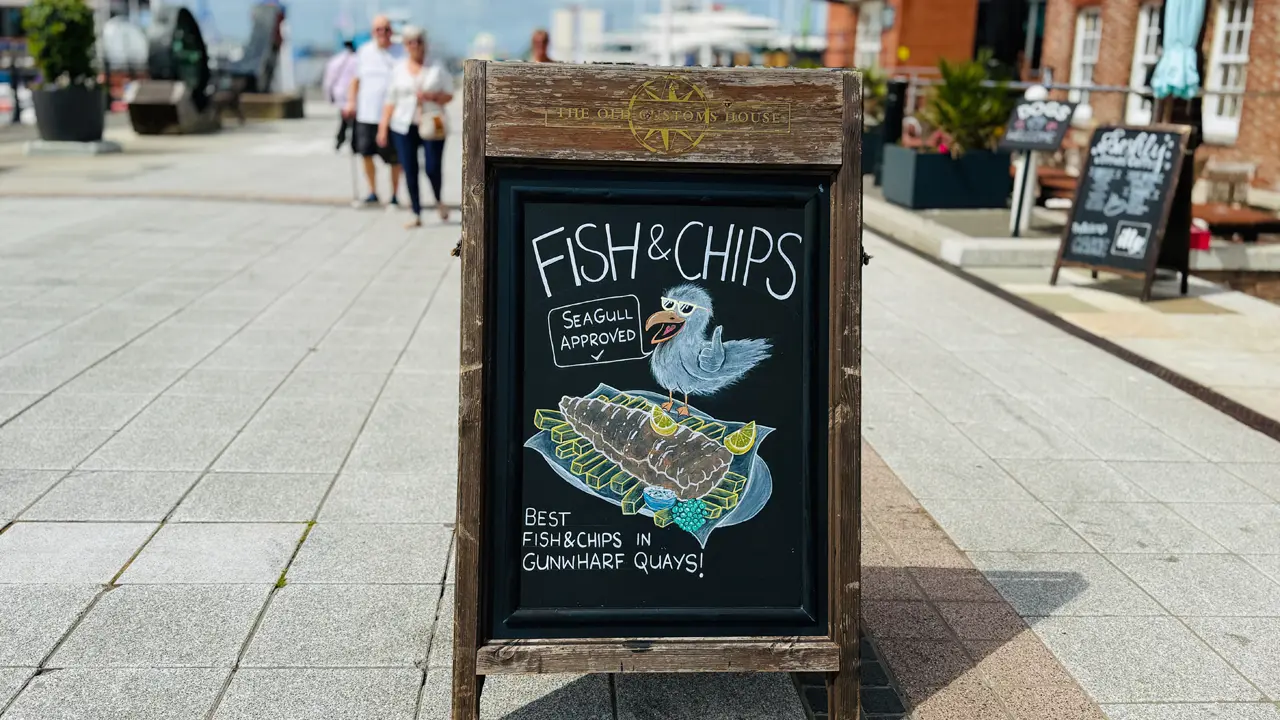 THE OLD CUSTOMS HOUSE
FISH & CHIPS
SEAGULL
APPROVED
BEST
FISH&CHIPS IN
GUNWHARF QUAYS!
DOGS